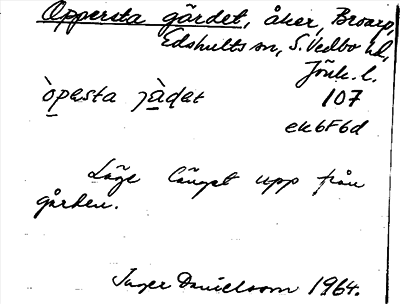 Oppersta gärdet, åker, Broarp,
Edshults sn, S. Vedbo hd,
Jönk. l.
òpesta jàdet 107
ek6F6d
Läge längst upp från
gården.
Inger Danielsson 1964.